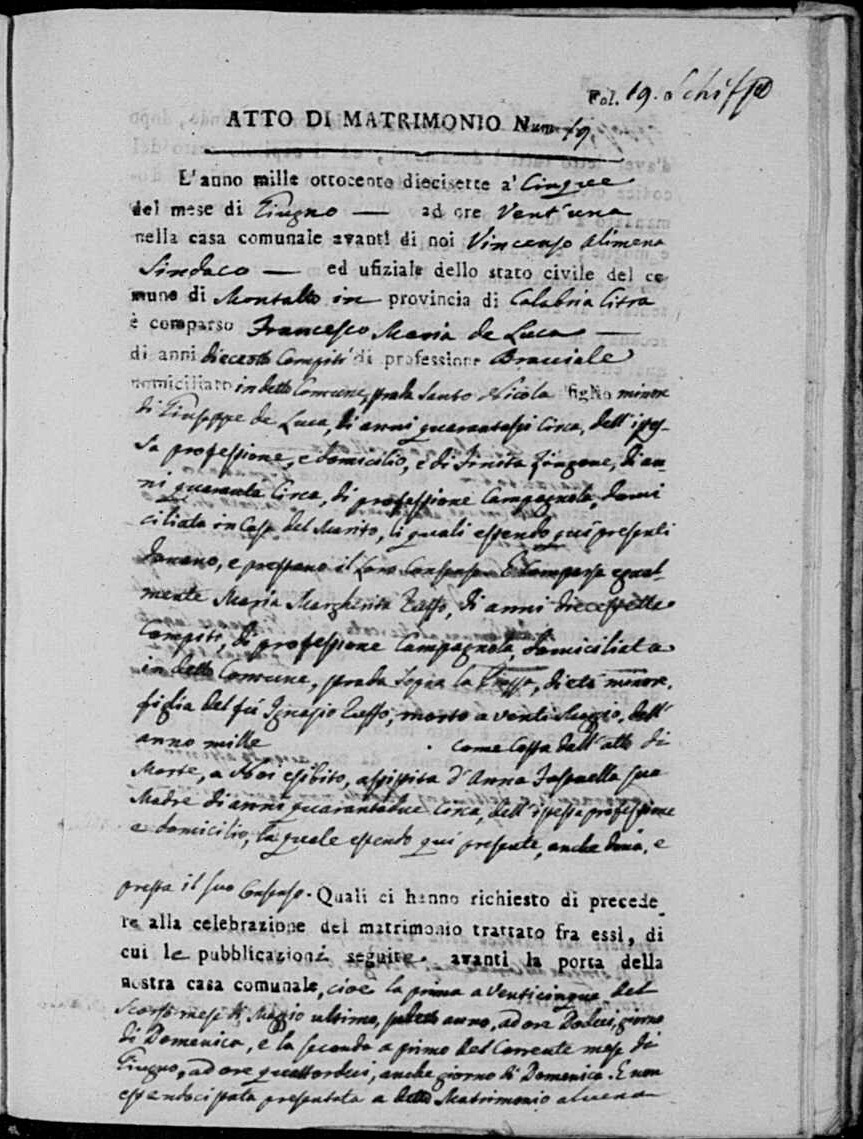 Fol. 19.
ATTO DI MATRIMONIO Num. 19
L'anno mille ottocento diecisette a' Cinque
del mese di Giugno — ad ore Vent'una
nella casa comunale avanti di noi Vincenzo Alimena
Sindaco — ed ufiziale dello stato civile del co
mune di Montalto in provincia di Calabria Citra
è comparso Francesco Maria de Luca —
di anni diecotto Compiti di professione Bracciale
domiciliato in detto Comune, strada Santo Nicola figlio minore
di Giuseppe de Luca, di anni quarantasei Circa, dell'istes-
sa professione, e domicilio, e di Trinita Zingone, di an-
ni quaranta Circa, di professione Campagnola, domi
ciliata in Casa del Marito, li quali essendo qui presenti
donano, e prestano il Loro Consenso. E Comparsa egual-
mente Maria Margherita Russo, di anni diecessette
Compiti, di professione Campagnola, domiciliata
in detto Comune, strada Sopra la, di età minore,
figlia del fù Ignazio Russo, morto a venti Maggio, dell'
anno mille come Costa dall'atto di
Morte, a Noi esibito, assistita d'Anna sua
Madre di anni quarantadue Circa, dell'istessa professione
e domicilio, la quale essendo qui presente, anche dona, e
presta il suo Consenso. Quali ci hanno richiesto di precede
re alla celebrazione del matrimonio trattato fra essi, di
cui le pubblicazioni seguite avanti la porta della
nostra casa comunale, cioè la prima a Venticinque del
scorso mese di Maggio ultimo, suddetto anno, ad ore Dodeci, giorno
di Domenica, e la seconda a primo del Corrente mese di
Giugno, ad ore quattordeci, anche giorno di Domenica. E non
essendoci stata presentata a detto Matrimonio alcuna